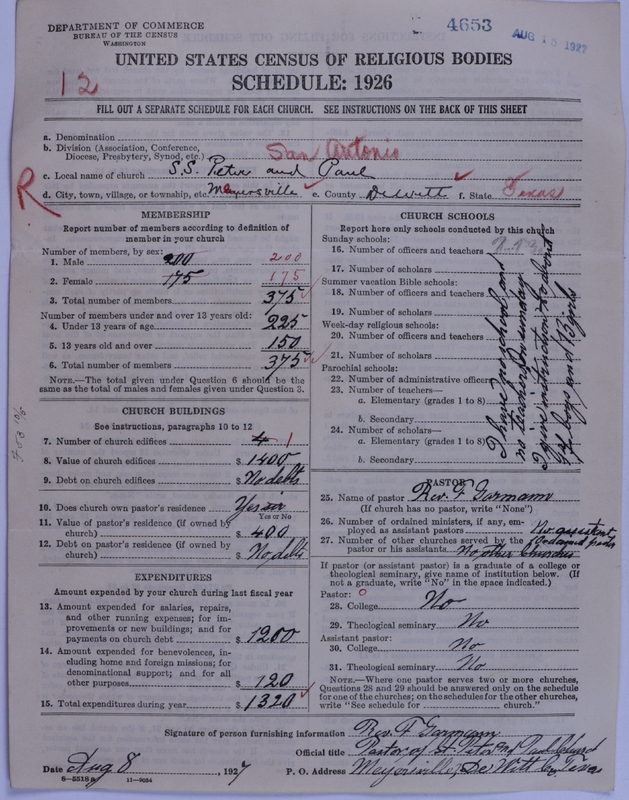 DEPARTMENT OF COMMERCE
BUREAU OF THE CENSUS
WASHINGTON
4653
AUG 15 1927
UNITED STATES CENSUS OF RELIGIOUS BODIES
SCHEDULE: 1926
12
FILL OUT A SEPARATE SCHEDULE FOR EACH CHURCH. SEE INSTRUCTIONS ON THE BACK OF THIS SHEET
a. Denomination
b. Division (Association, Conference, Diocese, Presbytery, Synod, etc.) San Antonio
c. Local name of church S.S. Peter and Paul
R
d. City, town, village, or township, etc. Meyersville e. County Dewitt f. State Texas
MEMBERSHIP
Report number of members according to definition of member in your church
Number of members, by sex:
1. Male 200 200
2. Female 175 175
3. Total number of members 375
Number of members under and over 13 years old:
4. Under 13 years of age 225
5. 13 years old and over 150
6. Total number of members 375
NOTE.—The total given under Question 6 should be the same as the total of males and females given under Question 3.
CHURCH BUILDINGS
See instructions, paragraphs 10 to 12
7. Number of church edifices 4 1
8. Value of church edifices $ 1400
9. Debt on church edifices $ No debts
10. Does church own pastor's residence Yes sir
Yes or No
11. Value of pastor's residence (if owned by church) $ 400
12. Debt on pastor's residence (if owned by church) $ No debts
EXPENDITURES
Amount expended by your church during last fiscal year
13. Amount expended for salaries, repairs, and other running expenses; for improvements or new buildings; and for payments on church debt $ 1200
14. Amount expended for benevolences, including home and foreign missions; for denominational support; and for all other purposes $ 120
15. Total expenditures during year $ 1320
CHURCH SCHOOLS
Report here only schools conducted by this church
Sunday schools:
16. Number of officers and teachers
17. Number of scholars
Summer vacation Bible schools:
18. Number of officers and teachers
19. Number of scholars
Week-day religious schools:
20. Number of officers and teachers
21. Number of scholars
Parochial schools:
22. Number of administrative officers
23. Number of teachers—
a. Elementary (grades 1 to 8)
b. Secondary
24. Number of scholars—
a. Elementary (grades 1 to 8)
b. Secondary
I have no school and
no teacher for sunday
I give instruction to about
boys and girls
PASTOR
25. Name of pastor Rev. F. Gormann
(If church has no pastor, write "None")
26. Number of ordained ministers, if any, employed as assistant pastors No assistent
27. Number of other churches served by the pastor or his assistants no other Churches
If pastor (or assistant pastor) is a graduate of a college or theological seminary, give name of institution below. (If not a graduate, write "No" in the space indicated.)
Pastor: 0
28. College No
29. Theological seminary No
Assistant pastor:
30. College No
31. Theological seminary No
NOTE.—Where one pastor serves two or more churches, Questions 28 and 29 should be answered only on the schedule for one of the churches; on the schedules for the other churches, write "See schedule for church."
Signature of person furnishing information Rev. F Gormann
Official title Pastor of St. Peter and Paul church
Date Aug 8, 1927 P. O. Address Meyersville, De Witt Co, Texas
8—5518a 11—9034